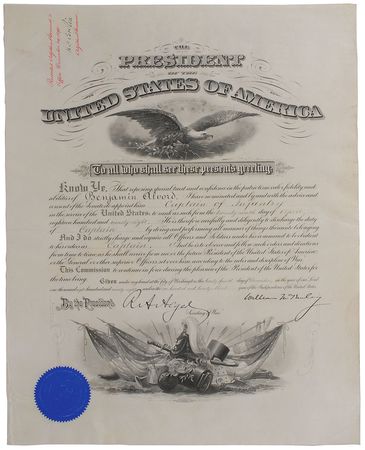 THE
PRESIDENT
OF THE
UNITED STATES OF AMERICA
To all who shall see these presents greeting:
Know Ye, That reposing special trust and confidence in the patriotism valor fidelity and
abilities of Benjamin Alvord I have nominated and by and with the advice and
consent of the Senate do appoint him Captain of Infantry
in the service of the United States: to rank as such from the day of
eighteen hundred and ninety He is therefore carefully and diligently to discharge the duty
of Captain by doing and performing all manner of things thereunto belonging.
And I do strictly charge and require all Officers and Soldiers under his command to be obedient
to his orders as Captain And he is to observe and follow such orders and directions
from time to time as he shall receive from me or the future President of the United States of America
or the General or other superior Officers set over him according to the rules and discipline of War.
This Commission to continue in force during the pleasure of the President of the United States for
the time being. Given under my hand at the City of Washington this day of in the year of our Lord
one thousand eight hundred and ninety and in the one hundred and twenty year of the Independence of the United States.
By the President
R. A. Alger
William McKinley
Secretary of War